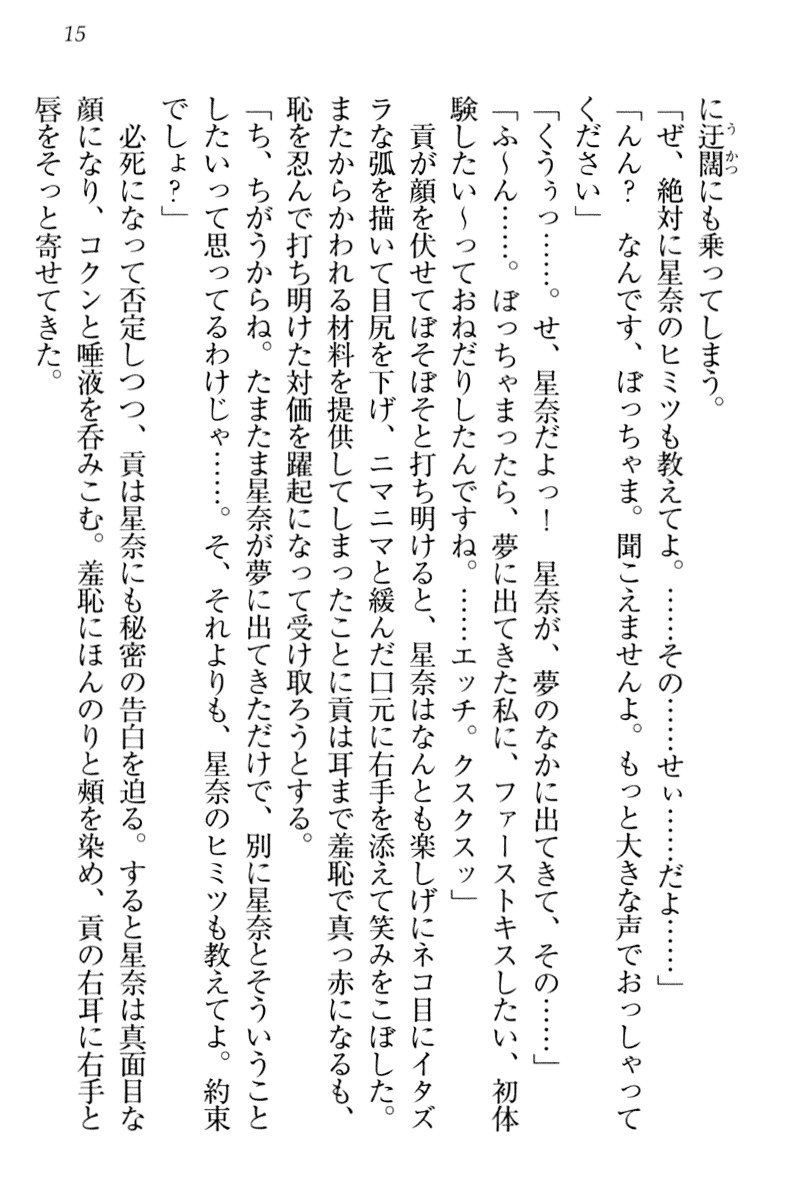 15
に迂闊にも乗ってしまう。
「ぜ、絶対に星奈のヒミツも教えてよ。……その……せぃ……だよ……」
「んん?　なんです、ぼっちゃま。聞こえませんよ。もっと大きな声でおっしゃって
ください」
「くうぅっ……。せ、星奈だよっ!　星奈が、夢のなかに出てきて、その……」
「ふ〜ん……。ぼっちゃまったら、夢に出てきた私に、ファーストキスしたい、初体
験したい〜っておねだりしたんですね。……エッチ。クスクスッ」
　貢が顔を伏せてぼそぼそと打ち明けると、星奈はなんとも楽しげにネコ目にイタズ
ラな弧を描いて目尻を下げ、ニマニマと緩んだ口元に右手を添えて笑みをこぼした。
またからかわれる材料を提供してしまったことに貢は耳まで羞恥で真っ赤になるも、
恥を忍んで打ち明けた対価を躍起になって受け取ろうとする。
「ち、ちがうからね。たまたま星奈が夢に出てきただけで、別に星奈とそういうこと
したいって思ってるわけじゃ……。そ、それよりも、星奈のヒミツも教えてよ。約束
でしょ?」
　必死になって否定しつつ、貢は星奈にも秘密の告白を迫る。すると星奈は真面目な
顔になり、コクンと唾液を呑みこむ。羞恥にほんのりと頰を染め、貢の右耳に右手と
唇をそっと寄せてきた。